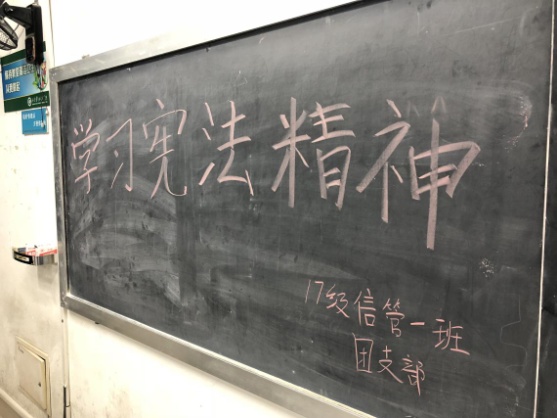 学习宪法精神
17级信管一班
团支部